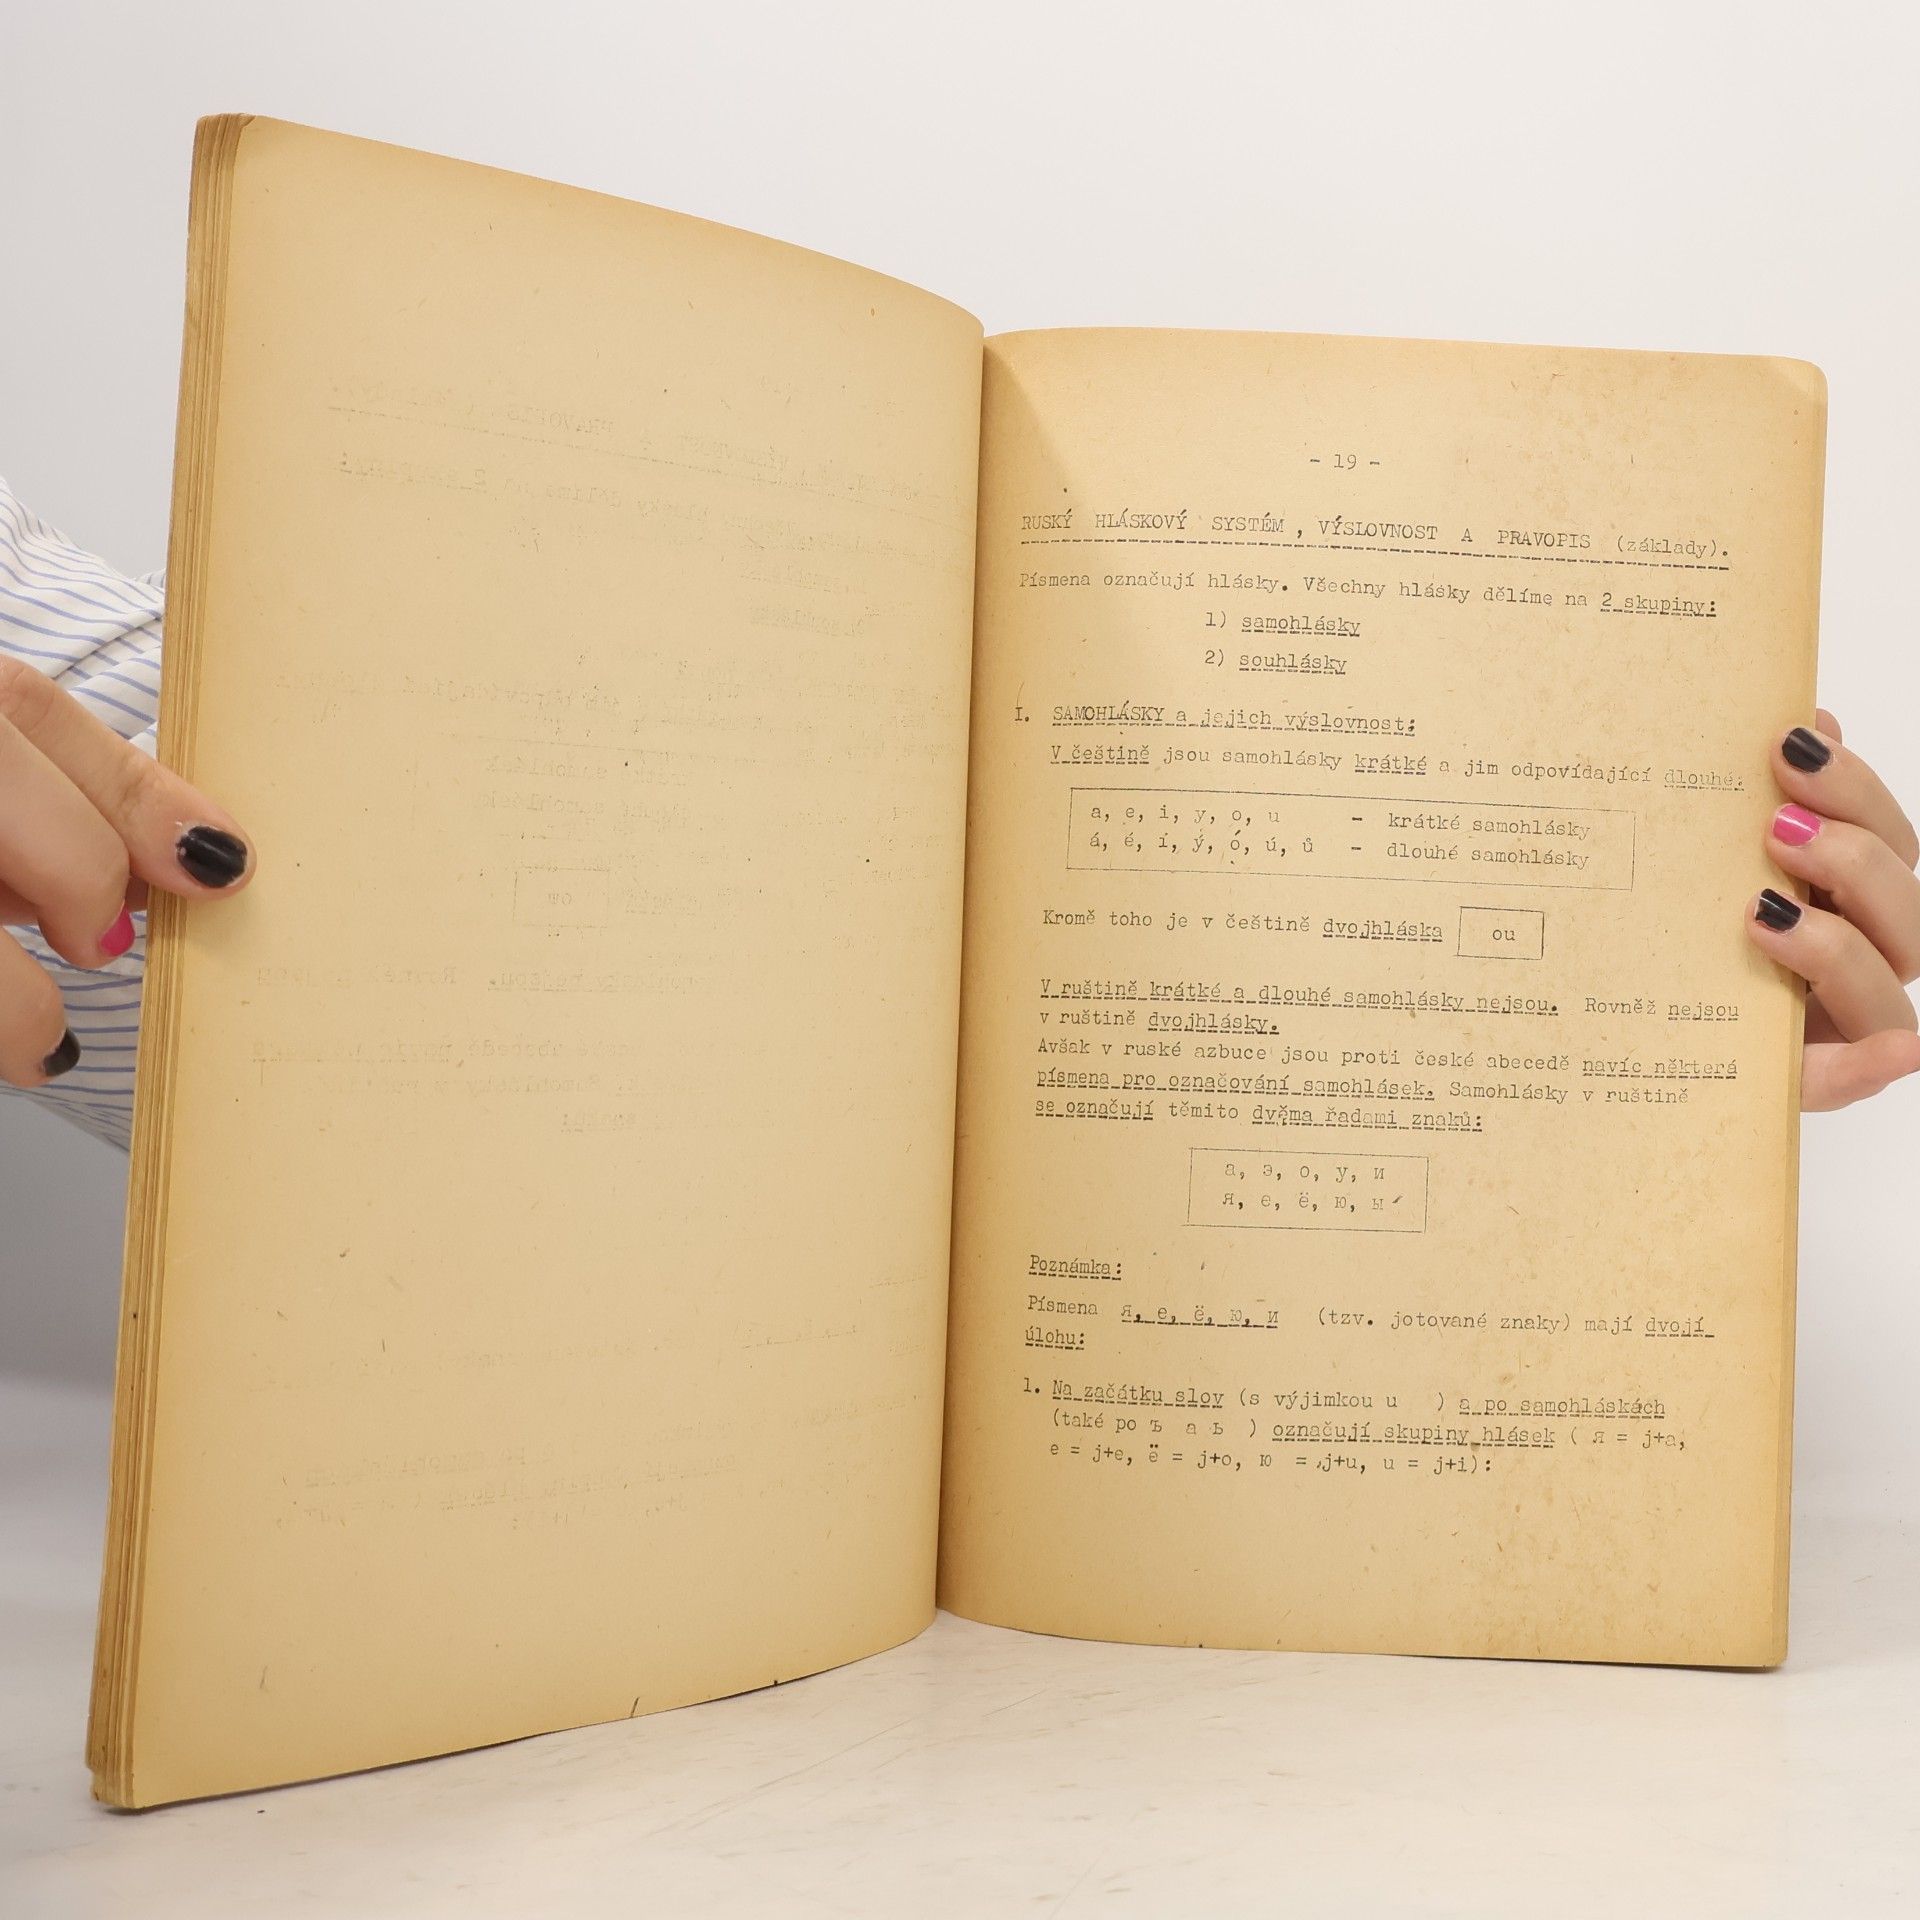 - 19 -
RUSKÝ HLÁSKOVÝ SYSTÉM, VÝSLOVNOST A PRAVOPIS (základy).
Písmena označují hlásky. Všechny hlásky dělíme na 2 skupiny:
1) samohlásky
2) souhlásky
I. SAMOHLÁSKY a jejich výslovnost:
V češtině jsou samohlásky krátké a jim odpovídající dlouhé:
a, e, i, y, o, u - krátké samohlásky
á, é, í, ý, ó, ú, ů - dlouhé samohlásky
Kromě toho je v češtině dvojhláska ou
V ruštině krátké a dlouhé samohlásky nejsou. Rovněž nejsou
v ruštině dvojhlásky.
Avšak v ruské azbuce jsou proti české abecedě navíc některá
písmena pro označování samohlásek. Samohlásky v ruštině
se označují těmito dvěma řadami znaků:
а, э, о, у, и
я, е, ё, ю, ы
Poznámka:
Písmena я, е, ё, ю, и (tzv. jotované znaky) mají dvojí
úlohu:
1. Na začátku slov (s výjimkou u ) a po samohláskách
(také po ъ a ь ) označují skupiny hlásek ( я = j+a,
e = j+e, ë = j+o, ю = j+u, u = j+i):